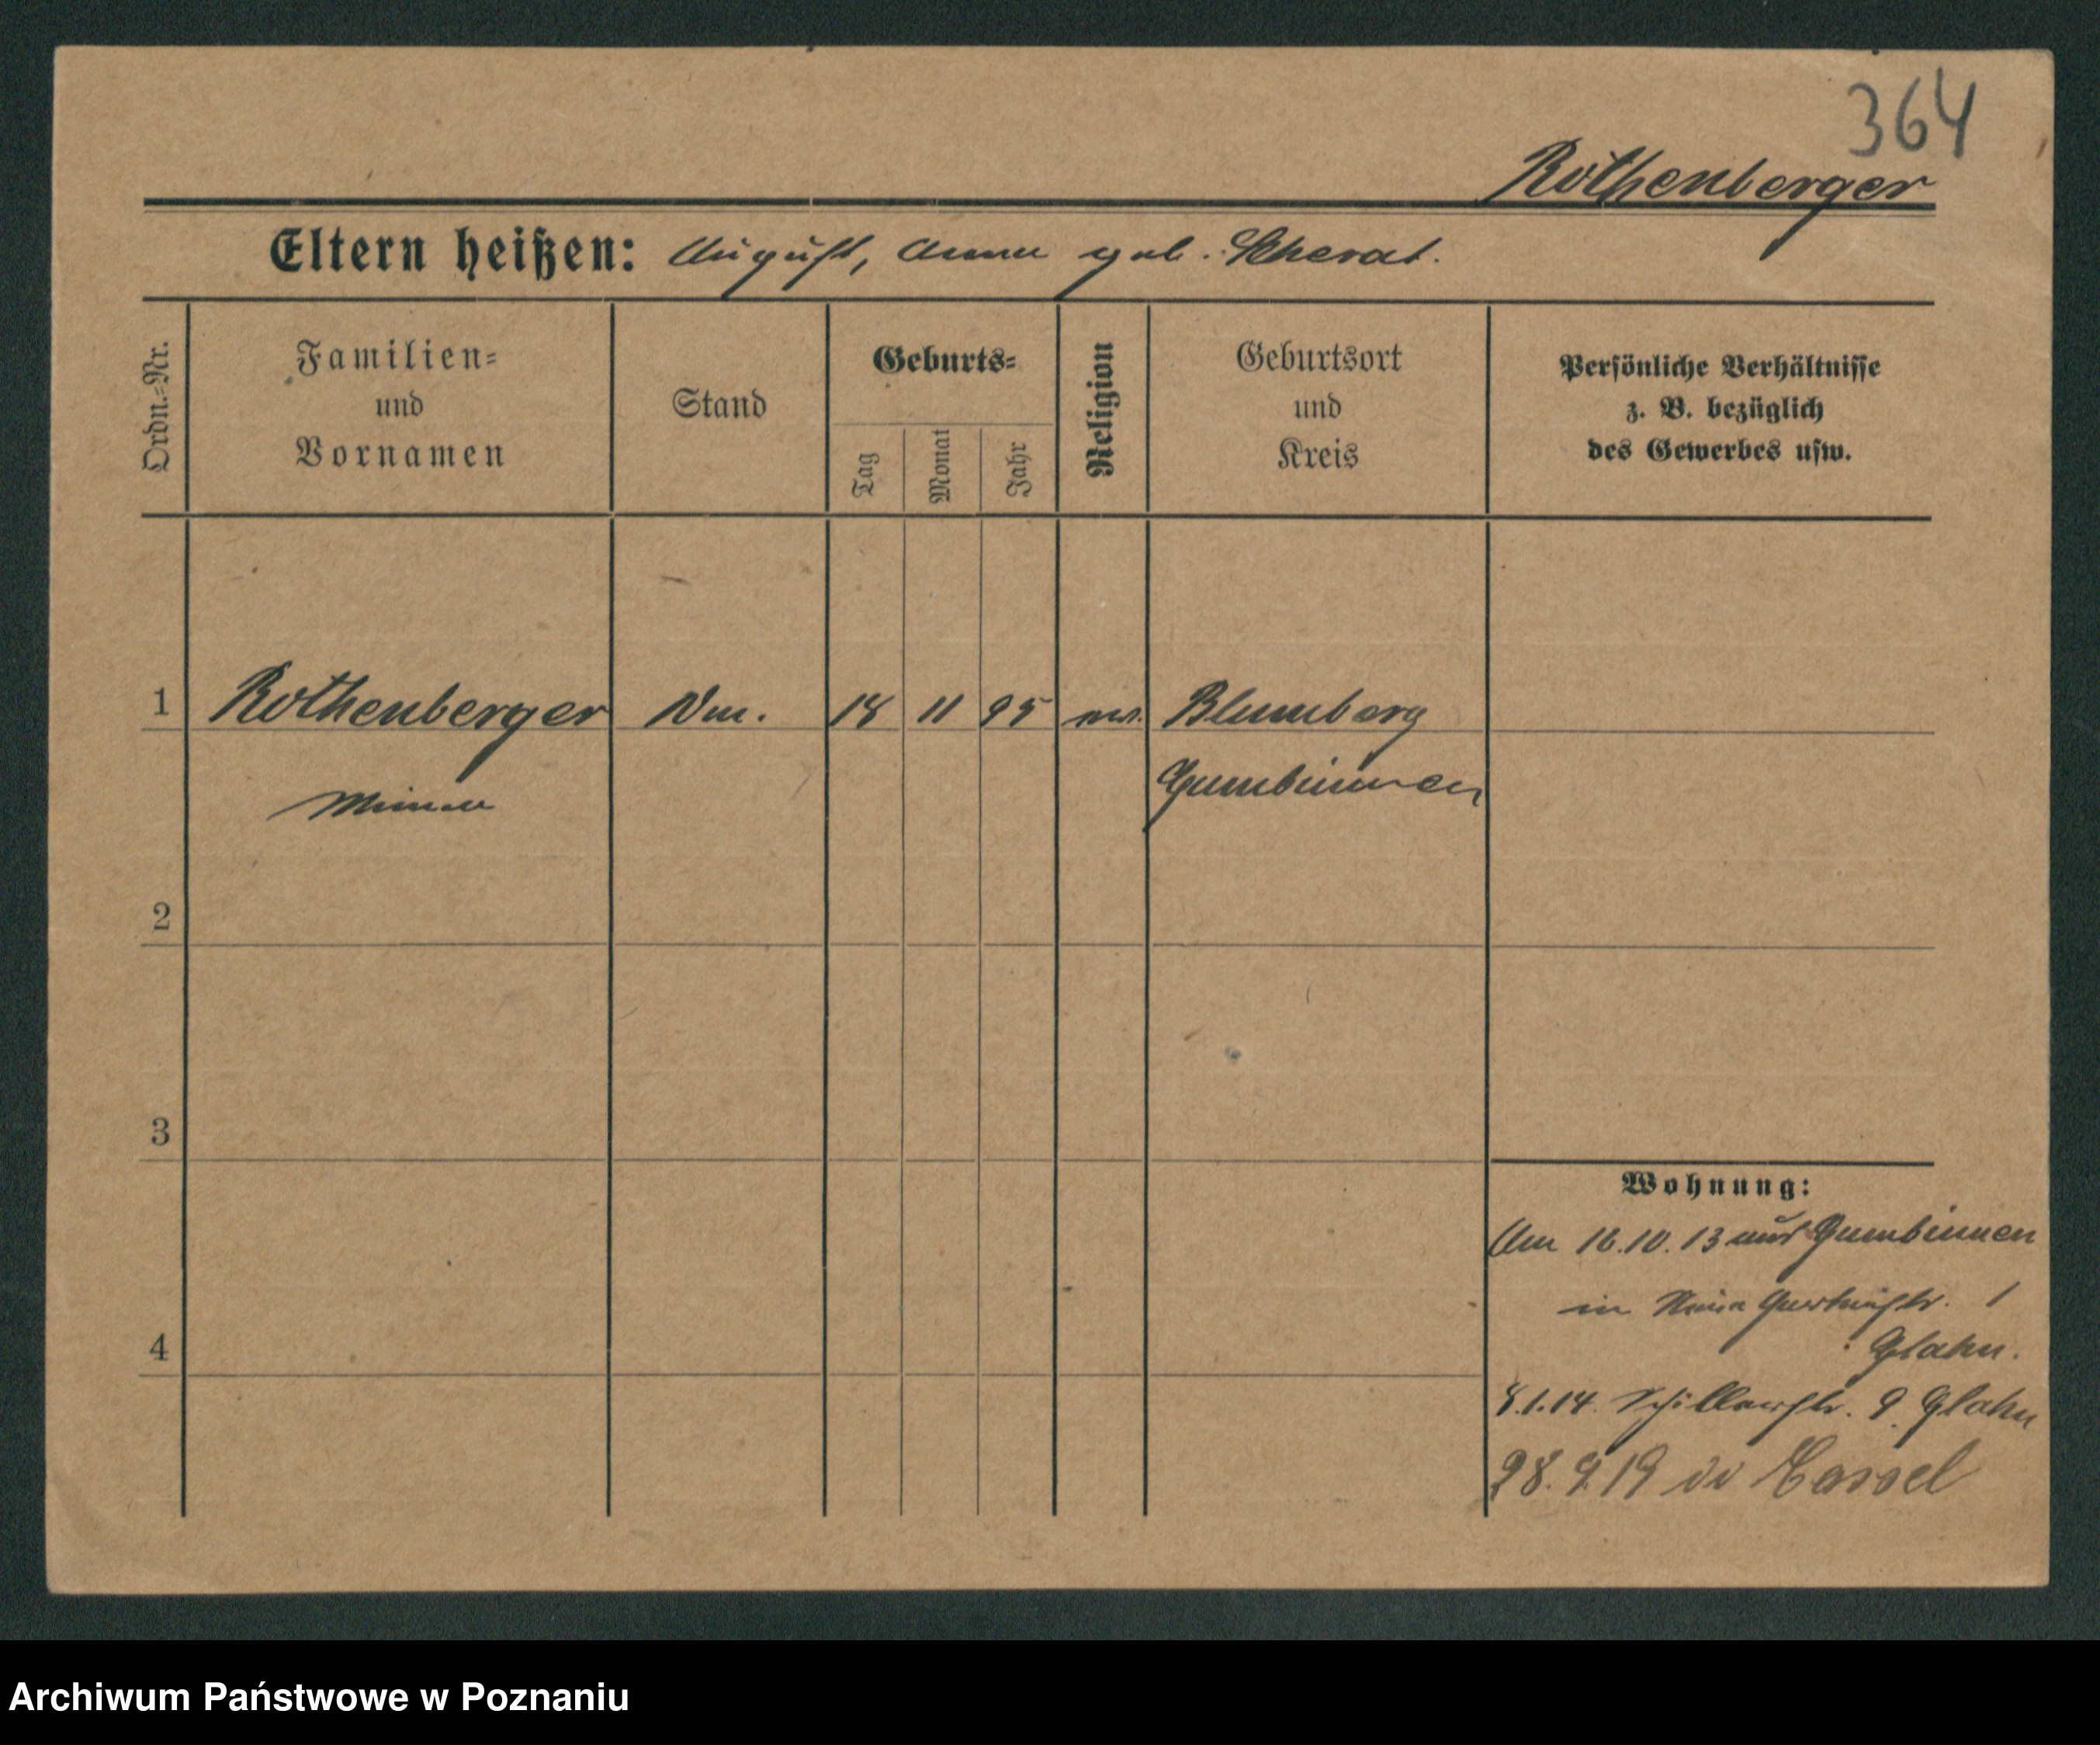 364
Rothenberger
Eltern heißen: August, Anna geb. Scherat.
Ordn.-Nr.
Familien- und Vornamen
Stand
Geburts-
Tag
Monat
Jahr
Religion
Geburtsort und Kreis
Persönliche Verhältnisse
z. B. bezüglich
des Gewerbes usw.
1 Rothenberger 18 11 95 Blumberg
Minna Gumbinnen
2
3
4
Wohnung:
Am 16.10.13 aus Gumbinnen
in Neue Gartenstr. 1
Glahn.
8.1.14. Schillerstr. 9 Glahn
28.9.19 Cassel
Archiwum Państwowe w Poznaniu